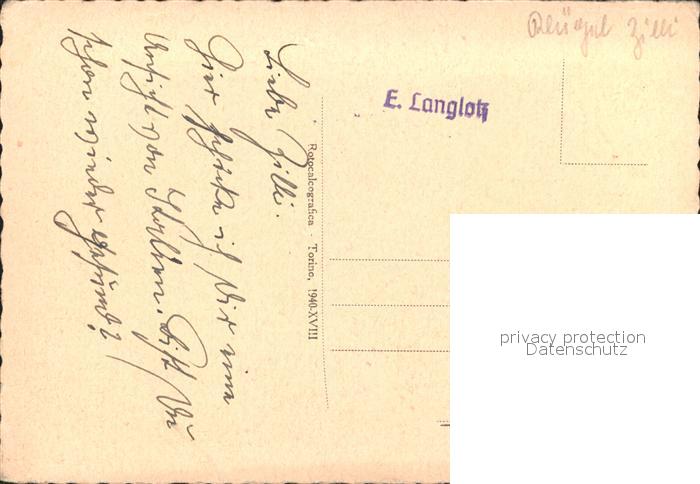 Liebe Zilli.
Hier schicke ich Dir eine
Ansicht von Italien. Bist Du
schon wieder gesund?
Rotocalcografica - Torino, 1940-XVIII
E. Langlotz
Zilli
privacy protection
Datenschutz